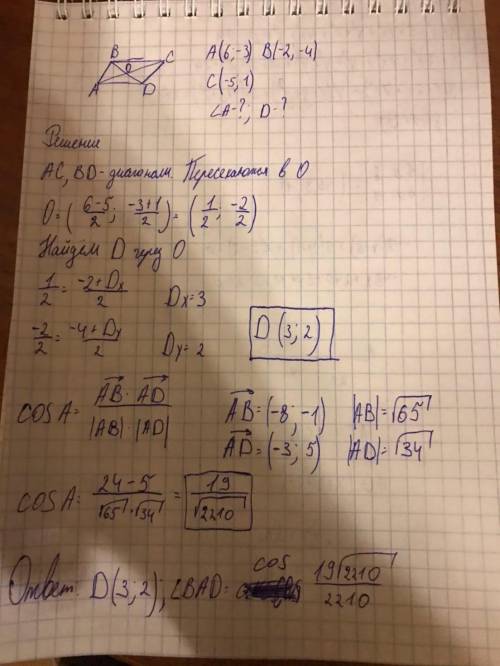 B C
O
A D
A(6;-3) B(-2,-4)
C(-5;1)
∠A-?; D-?
Решение
AC, BD - диагонали. Пересекаются в O
O = (6-5/2; -3+1/2) = (1/2; -2/2)
Найдем D через O
1/2 = -2+Dx/2 Dx=3
-2/2 = -4+Dy/2 Dy=2
D (3; 2)
cos A = AB · AD / |AB| · |AD|
AB = (-8; -1) |AB| = √65
AD = (-3; 5) |AD| = √34
cos A = 24-5 / √65 · √34 = 19 / √2210
Ответ: D(3; 2); ∠BAD = cos 19√2210 / 2210